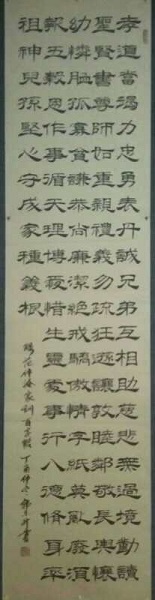 孝道當竭力忠勇表丹誠兄弟互相助慈悲無過境勤讀
聖賢書尊師如重親禮義勿疏狂遜讓敦睦鄰敬長與懷
幼憐恤孤寡貧謙恭尚廉潔絕戒驕傲情字紙莫亂廢須
報五穀恩作事循天理博愛惜生靈處事行八德修身率
祖神兒孫堅心守成家種義根
錄范仲淹家訓百字銘 丁酉仲冬 書